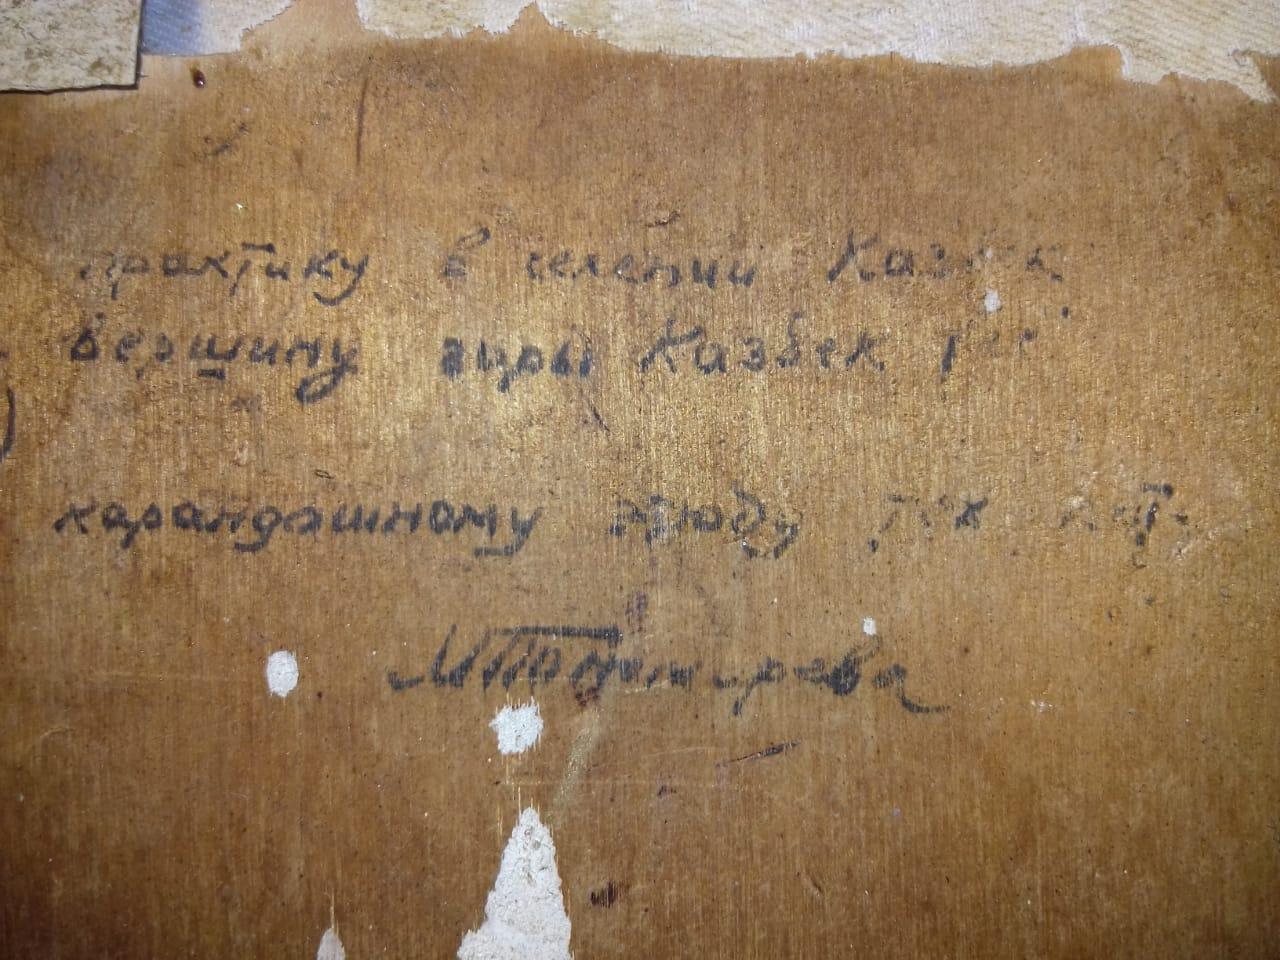 практику в селении Казбек
вершину горы Казбек
карандашному этюду тех лет.